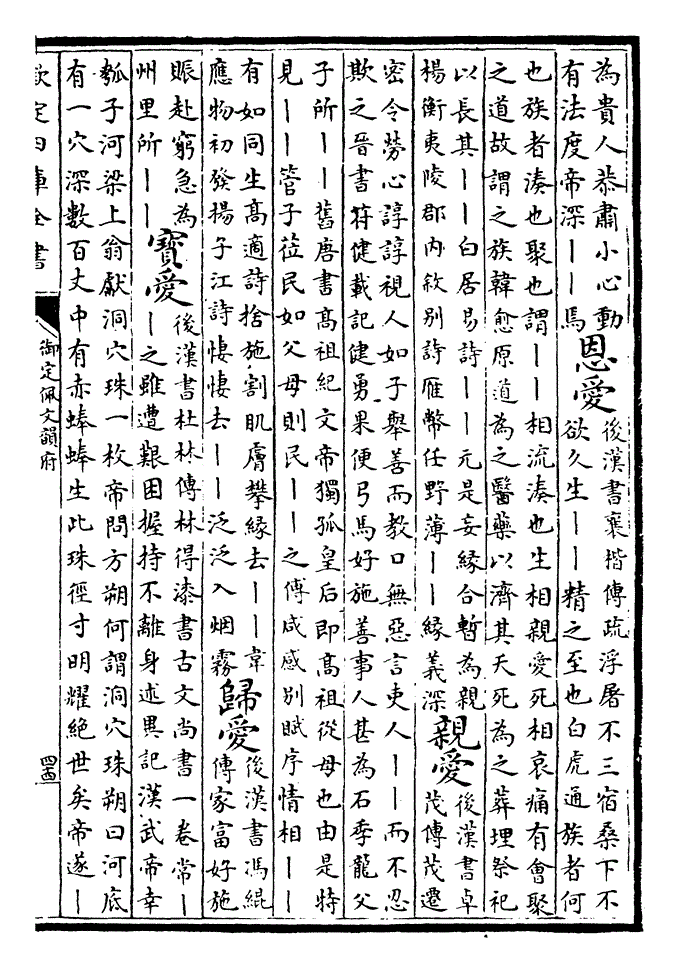 為貴人恭肅小心動
有法度帝深——焉
恩愛
後漢書襄楷傳疏浮屠不三宿桑下不
欲久生——精之至也白虎通族者何
也族者湊也聚也謂——相流湊也生相親愛死相哀痛有會聚
之道故謂之族韓愈原道為之醫藥以濟其夭死為之葬埋祭祀
以長其——白居易詩——元是妄緣合暫為親
楊衡夷陵郡內敘別詩雁幣任野薄——緣義深
親愛
後漢書卓
茂傳茂遷
密令勞心諄諄視人如子舉善而教口無惡言吏人——而不忍
欺之晉書苻健載記健勇果便弓馬好施善事人甚為石季龍父
子所——舊唐書高祖紀文帝獨孤皇后即高祖從母也由是特
見——管子蒞民如父母則民——之傅咸感別賦序情相——
有如同生高適詩捨施割肌膚攀緣去——韋
應物初發揚子江詩悽悽去——泛泛入烟霧
歸愛
後漢書馮緄
傳家富好施
賑赴窮急為
州里所——
寶愛
後漢書杜林傳林得漆書古文尚書一卷常—
—之雖遭艱困握持不離身述異記漢武帝幸
瓠子河梁上翁獻洞穴珠一枚帝問方朔何謂洞穴珠朔曰河底
有一穴深數百丈中有赤蜯蜯生此珠徑寸明耀絕世矣帝遂—
欽定四庫全書
御定佩文韻府